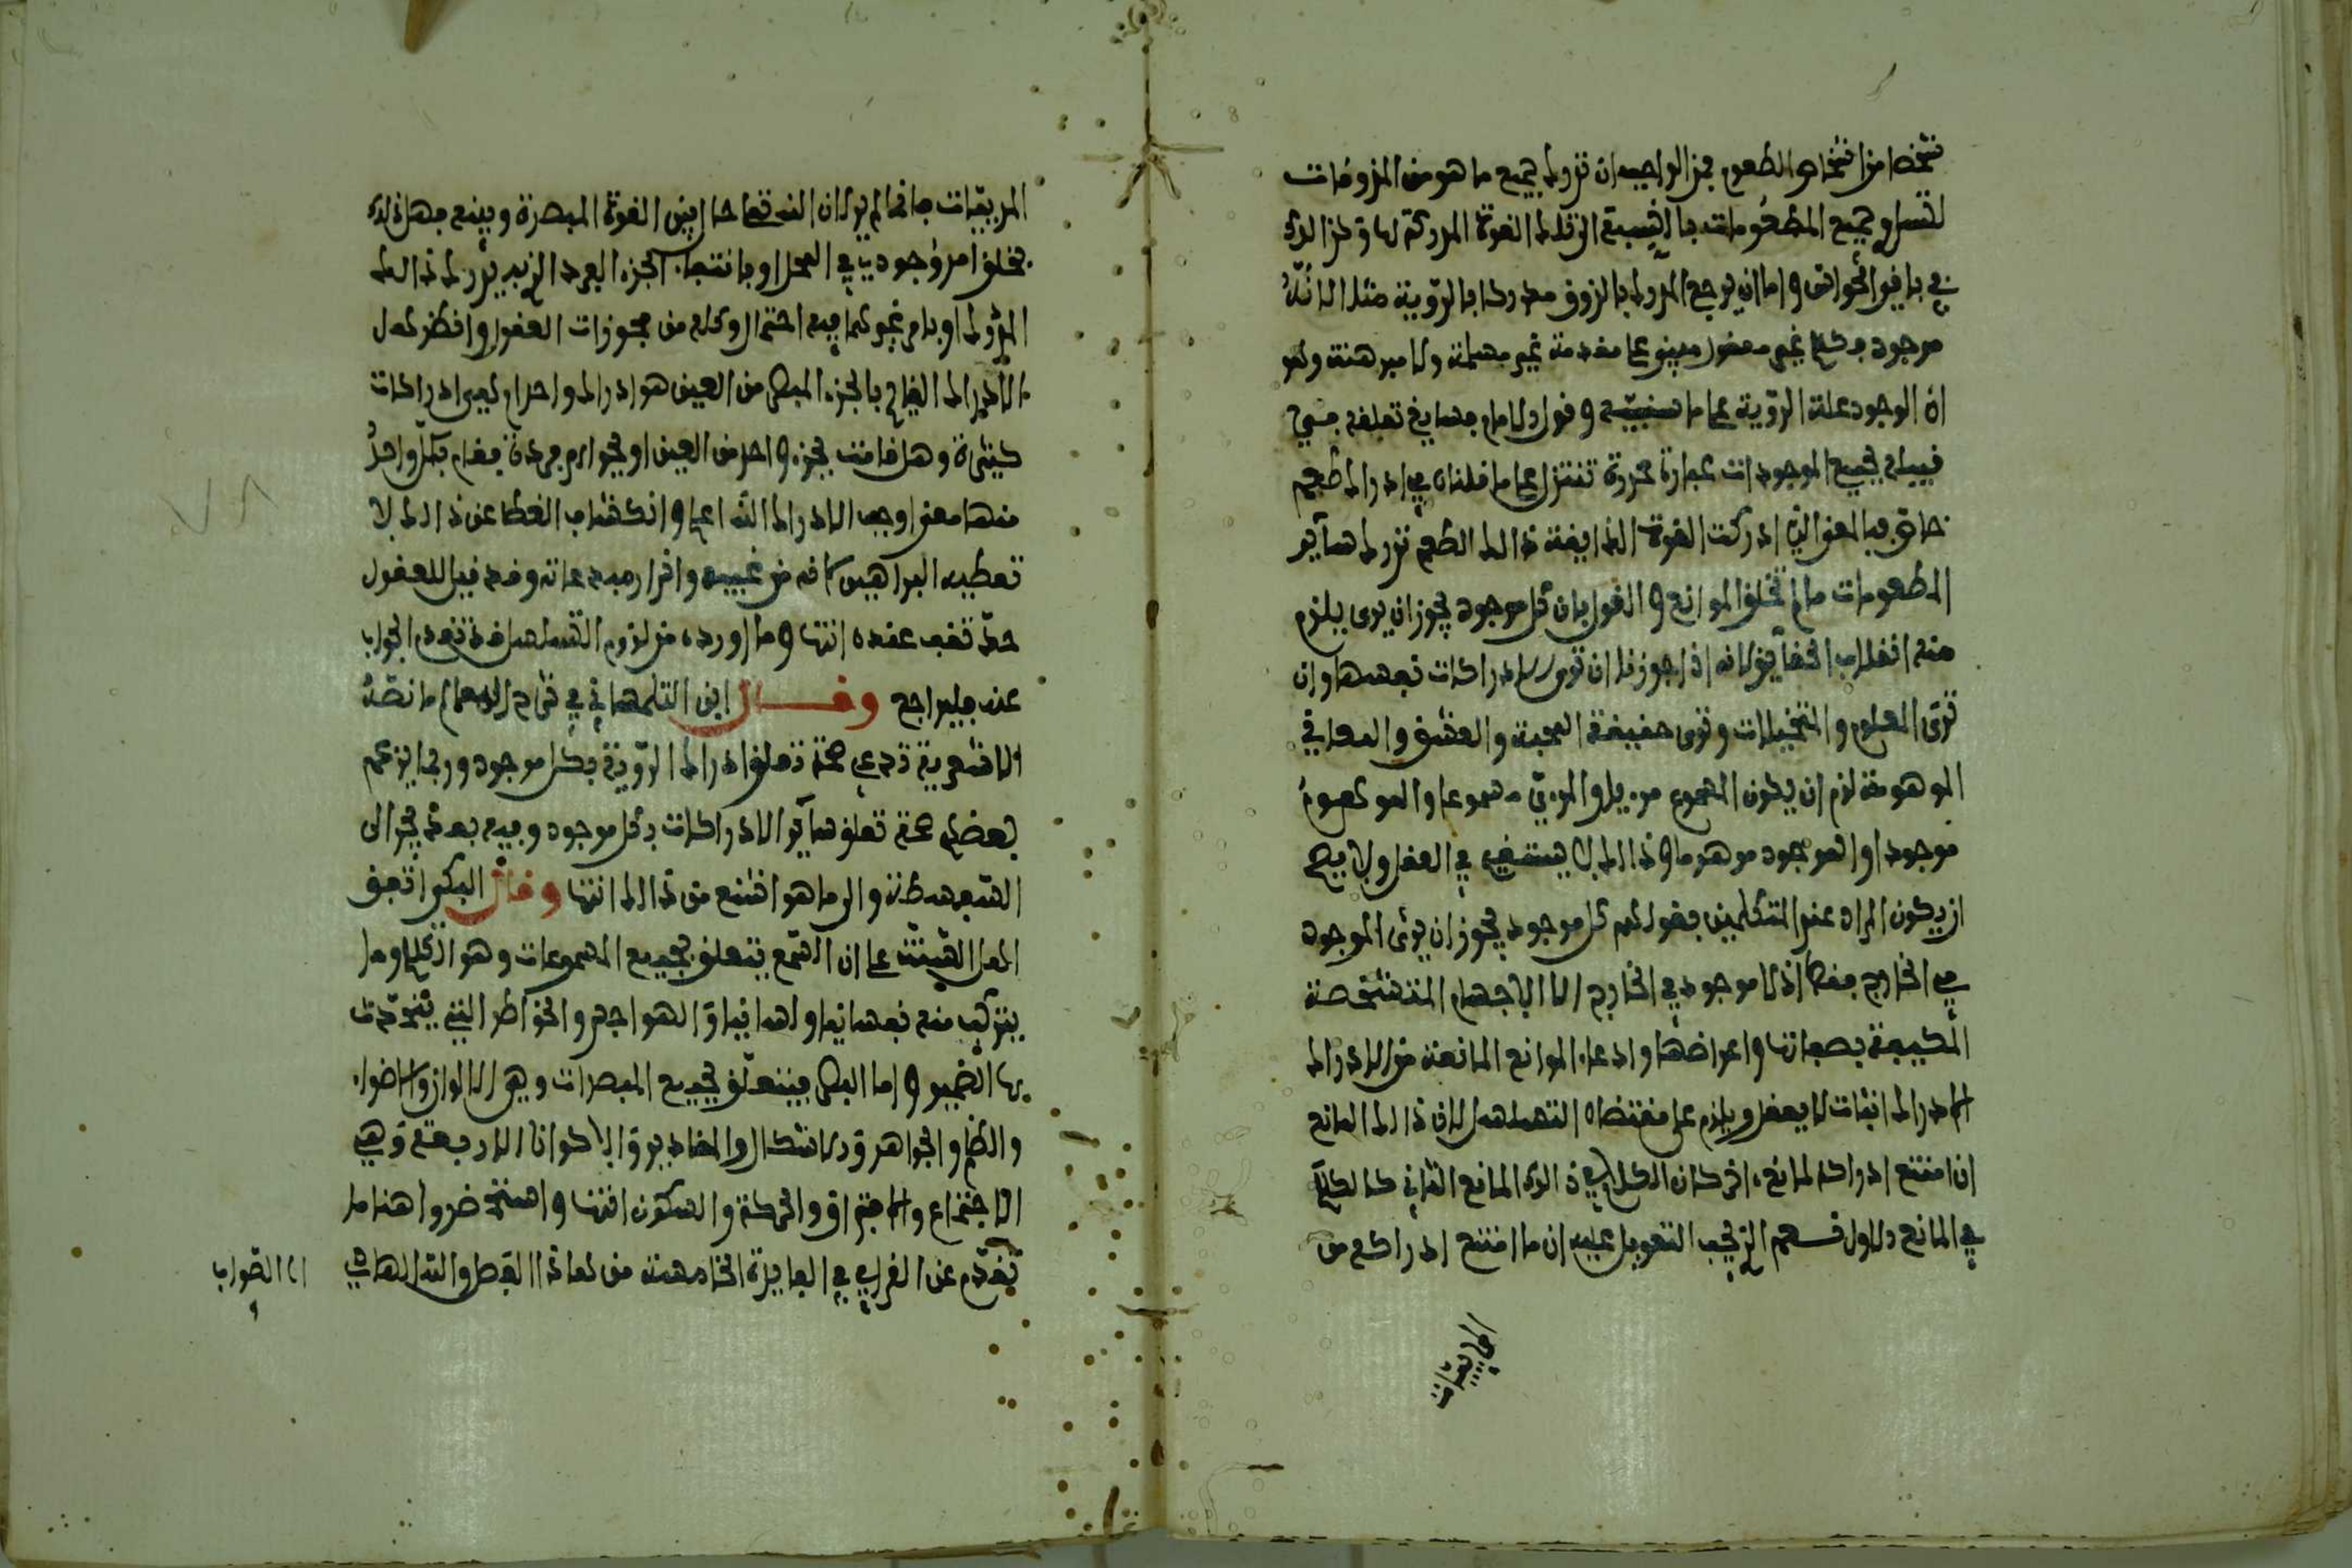 شخصا من اشخاص الطعوم فمن الواجب ان تدرك جميع ما هو من المذوقات
لتساوي جميع المطعومات بالنسبة الى تلك القوة المدركة لها وكذالك
في باقي الحواس واما ان يرجع المدرك بالذوق مدركا بالرؤية مثلا لانه
موجود فكلام غير معقول مبني على مقدمة غير مسلمة ولا مبرهنة وهو
ان الوجود علة الرؤية على ما وقول الامام
في جميع الموجودات عبارة محررة تتنزل على ما قلناه في ادراك طعم
خاص فبالمعنى الذي ادركت القوة الذايقة ذالك الطعم تدرك ساير
المطعومات ما لم تخلق الموانع والقول بان كل موجود يجوز ان يرى يلزم
منه انقلاب الحقايق لانه اذا جوزنا ان ترى الادراكات نفسها وان
ترى العلوم والتخيلات وترى حقيقة المحبة والعشق والمعاني
الموهومة لزم ان يكون المسموع مرييا والمرءي مسموعا والموهوم
موجودا والموجود موهوما وذالك لا يستقيم في العقل ولا يصح
ان يكون المراد عند المتكلمين بقولهم كل موجود يجوز ان يرى الموجود
في الخارج فقط اذ لا موجود في الخارج الا الاجسام المتشخصة
المكيفة بصفاتها واعراضها وادعاء الموانع المانعة من الادراك
لادراك اثبات لا يعقل ويلزم على مقتضاه التسلسل لان ذالك المانع
ان امتنع ادراكه لمانع اخر كان الكلام في ذالك المانع الثاني كالكلام
في المانع الاول فسحم الذي يجب التعويل عليه ان ما امتنع ادراكه من
المريئات
المريئات فانما لم يدرك لان الله تعالى حال بين القوة المبصرة وبينه
بخلق امر وجودي في المحل او بانتفاء الجزء الفرد الذي يدرك ذالك
المدرك او بامر نحوهما فيه احتمال وكله من مجوزات العقول وانظر هل
الادراك القايم بالجزء المبصر من العين هو ادراك واحد ام هي ادراكات
كثيرة وهل قامت بجزء واحد من العين او بجواهر فردة فقام بكل واحد
منها معنى اوجب الادراك الله اعلم وانكشاف الغطا عن ذالك لا
تعطيه البراهين لانه من غيبه واقرار مبدعاته وقد قيل للعقول
حد تقف عنده انتهى وما اورده من لزوم التسلسل قد تقدم الجواب
عنه فليراجع وقال ابن التلمساني في شرح المعالم ما نصه
الاشعرية تدعي صحة تعلق ادراك الرؤية بكل موجود وربما يزعم
بعضهم صحة تعلق ساير الادراكات بكل موجود وفيه بعد يجر الى
السفسطة والى ما هو اشنع من ذالك انتهى وقال البكي اتفق
اهل السنة على ان السمع يتعلق بجميع المسموعات وهو الكلام وما
يتركب منه نفسانيا ولسانيا والهواجس والخواطر التي يتحدث
بها الضمير واما البصر فيتعلق بجميع المبصرات وهي الالوان والاضواء
والظلم والجواهر والاشكال والمقادير والاكوان الاربعة وهي
الاجتماع والافتراق والحركة والسكون انتهى واستحضر هنا ما
تقدم عن القرافي في الفايدة الخامسة من هاذا الفصل والله الهادي
الى الصواب